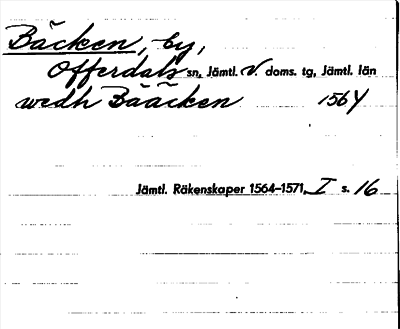 Bäcken, by,
Offerdals sn, Jämtl. V. doms. tg, Jämtl. län
wedh Bääcken 1564
Jämtl. Räkenskaper 1564–1571, I s. 16